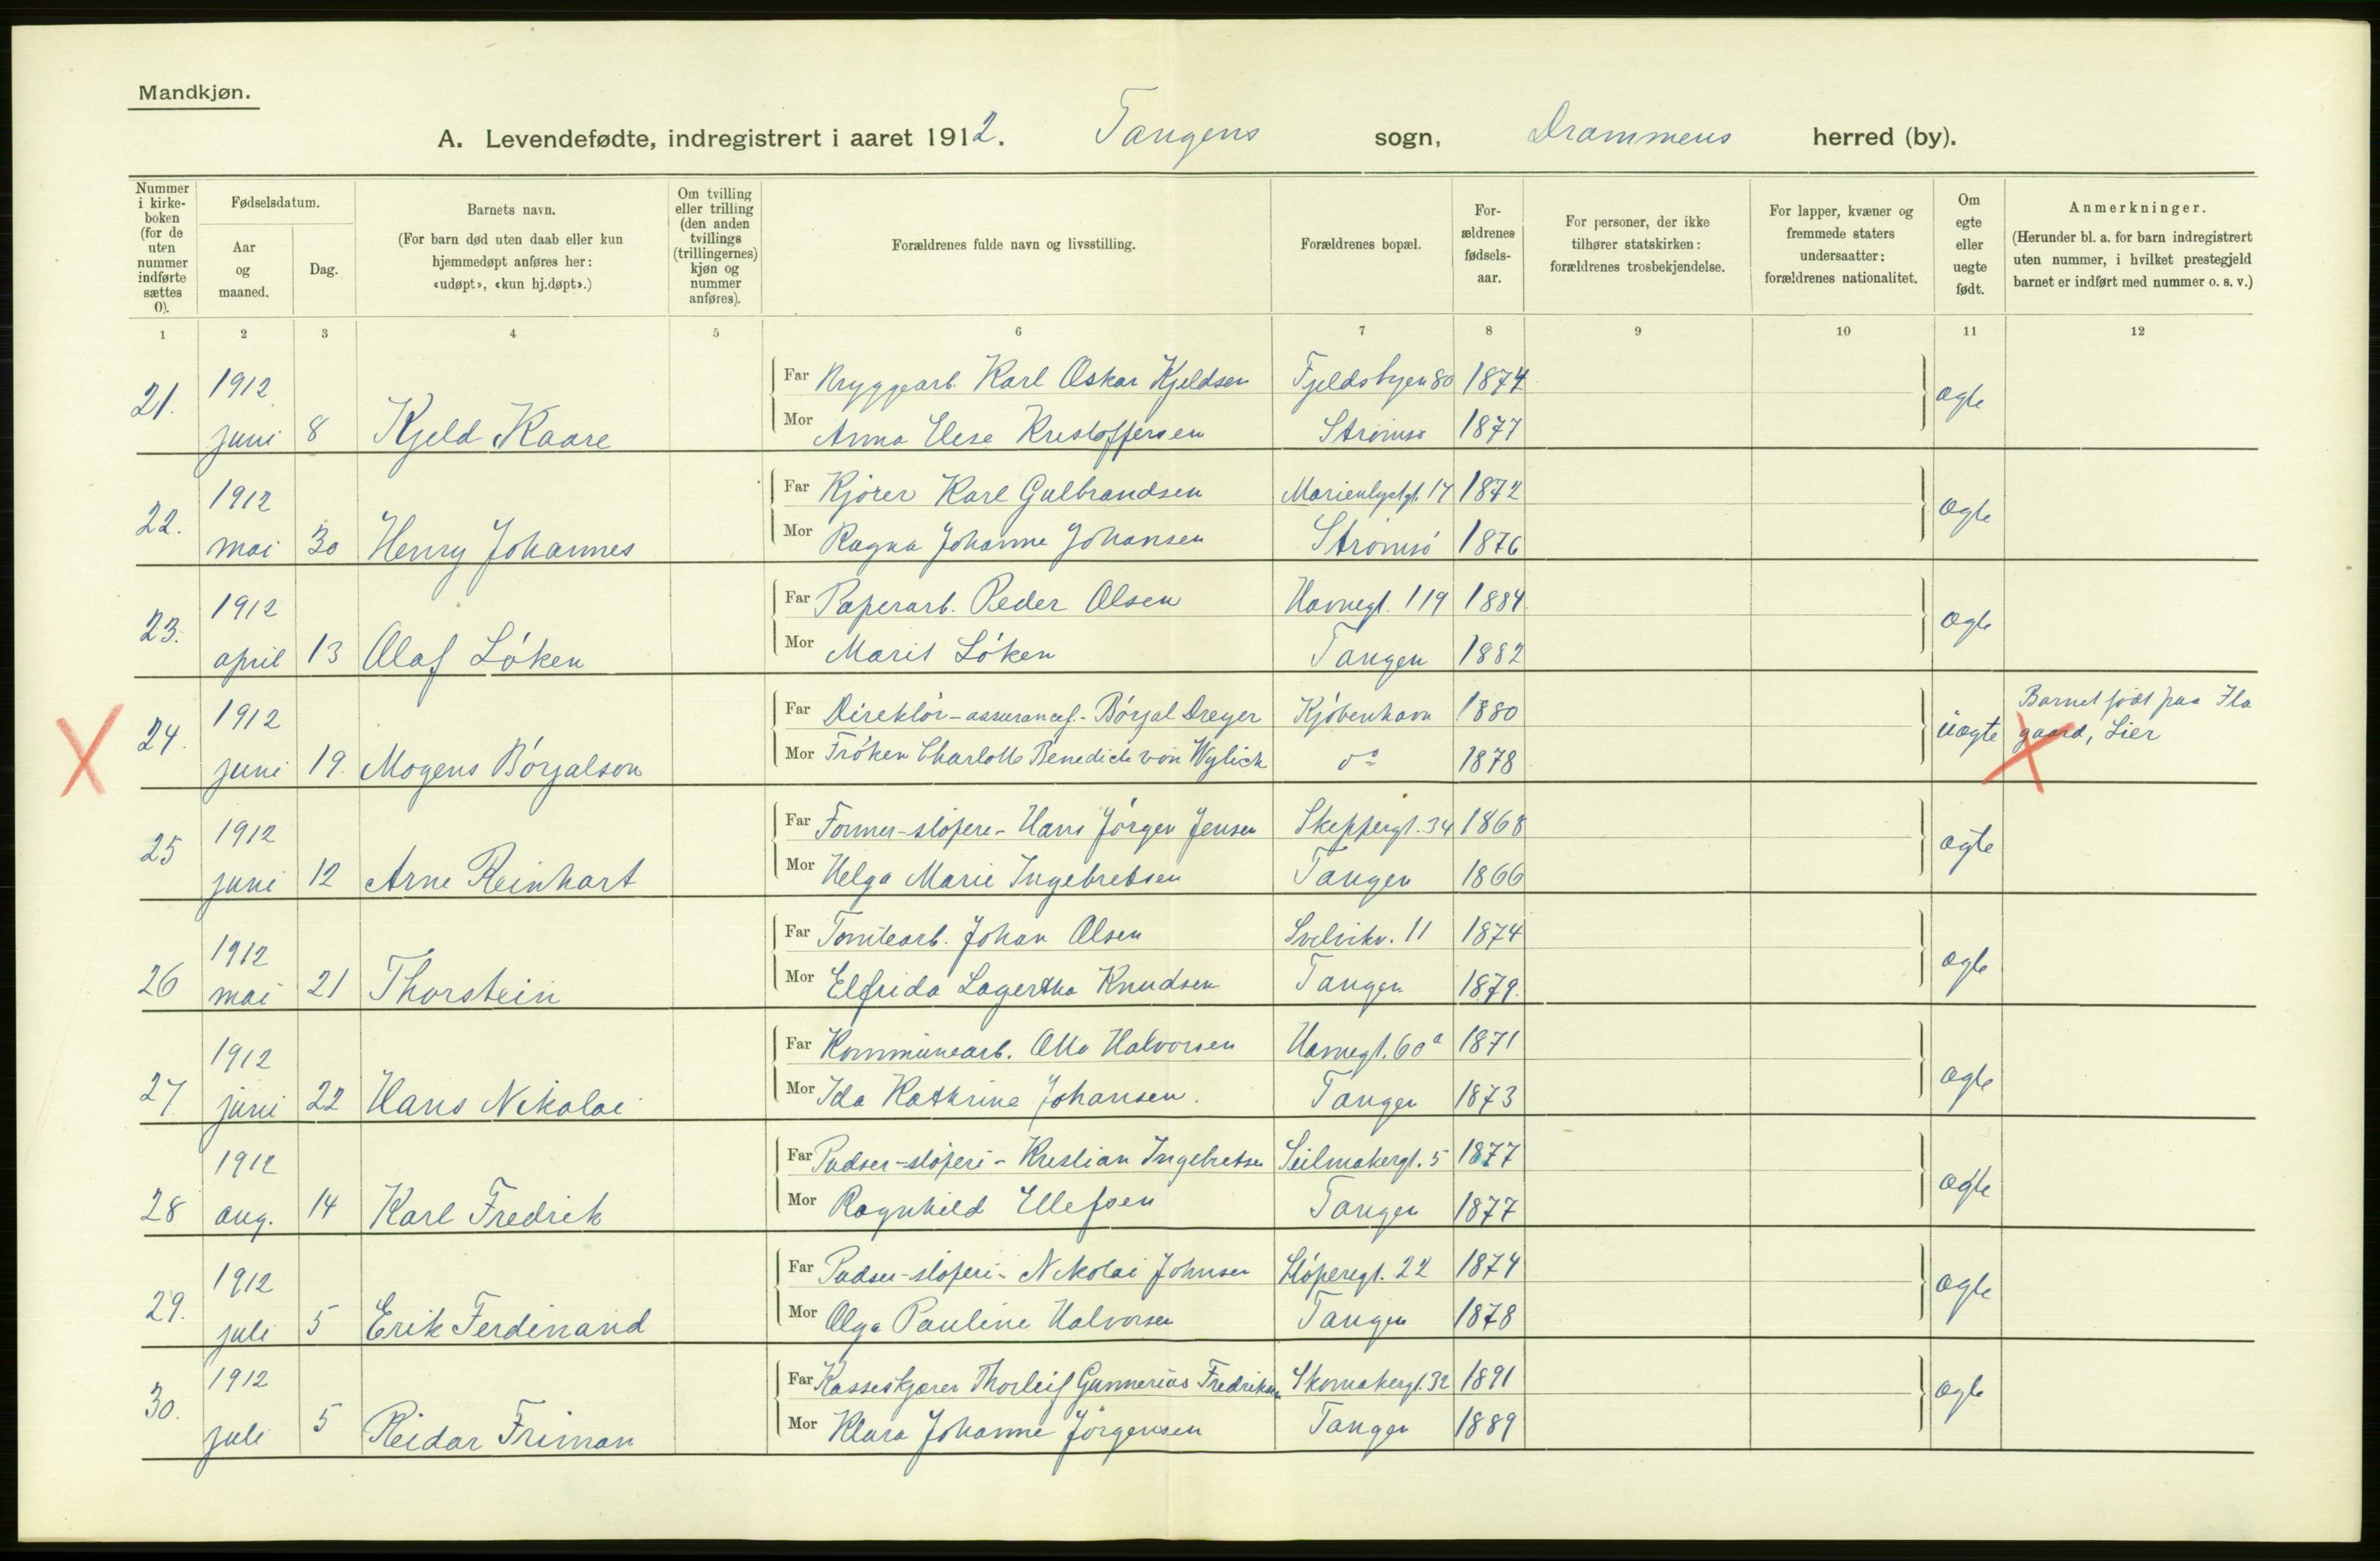 Mandkjøn.
A. Levendefødte, indregistrert i aaret 1912. Tangens sogn, Drammens herred (by).
Nummer i kirke-boken (for de uten nummer indførte sættes 0).
Fødselsdatum.
Aar og maaned.
Dag.
Barnets navn.
(For barn død uten daab eller kun hjemmedøpt anføres her: «udøpt», «kun hj.døpt».)
Om tvilling eller trilling (den anden tvillings (trillingernes) kjøn og nummer anføres).
Forældrenes fulde navn og livsstilling.
Forældrenes bopæl.
For-ældrenes fødsels-aar.
For personer, der ikke tilhører statskirken: forældrenes trosbekjendelse.
For lapper, kvæner og fremmede staters undersaatter: forældrenes nationalitet.
Om egte eller uegte født.
Anmerkninger.
(Herunder bl. a. for barn indregistrert uten nummer, i hvilket prestegjeld barnet er indført med nummer o. s. v.)
1 2 3 4 5 6 7 8 9 10 11 12
21. 1912 juni 8 Kjeld Kaare
Far Bryggearb. Karl Oskar Kjeldsen Fjeldsbyen 80 1874 ægte
Mor Anna Elise Kristoffersen Strømsø 1877
22. 1912 mai 30 Henry Johannes
Far Kjører Karl Gulbrandsen Marienlystgt. 17 1872 ægte
Mor Ragna Johanne Johansen Strømsø 1876
23. 1912 april 13 Olaf Løken
Far Papirarb. Peder Olsen Havnegt. 119 1884 ægte
Mor Marit Løken Tangen 1882
24. 1912 juni 19. Mogens Børjalson
Far Direktør-assurancef.- Børjal Dreyer Kjøbenhavn 1880 uægte Barnet født paa Ila
Mor Frøken Charlotte Benedicte von Wylich do 1878 gaard, Lier
25 1912 juni 12 Arne Reinhart
Far Former-støperi- Hans Jørgen Jensen Skippergt. 34 1868 ægte
Mor Helga Marie Ingebretsen Tangen 1866
26 1912 mai 21 Thorstein
Far Tomtearb. Johan Olsen Svelvikv. 11 1874 ægte
Mor Elfrida Lagertha Knudsen Tangen 1879.
27 1912 juni 22 Hans Nikolai
Far Kommunearb. Otto Halvorsen Havnegt. 60a 1871 ægte
Mor Ida Kathrine Johansen. Tangen 1873
28 1912 aug. 14 Karl Fredrik
Far Pudser-støperi- Kristian Ingebretsen Seilmakergt. 5 1877 ægte
Mor Ragnhild Ellefsen Tangen 1877
29. 1912 juli 5 Erik Ferdinand
Far Pudser-støperi- Nikolai Johnsen Støperigt. 22 1874 ægte
Mor Olga Pauline Halvorsen Tangen 1878
30. 1912 juli 5 Reidar Friman
Far Kasseskjærer Thorleif Gunnerius Fredriksen Skomakergt. 32 1891 ægte
Mor Klara Johanne Jørgensen Tangen 1889